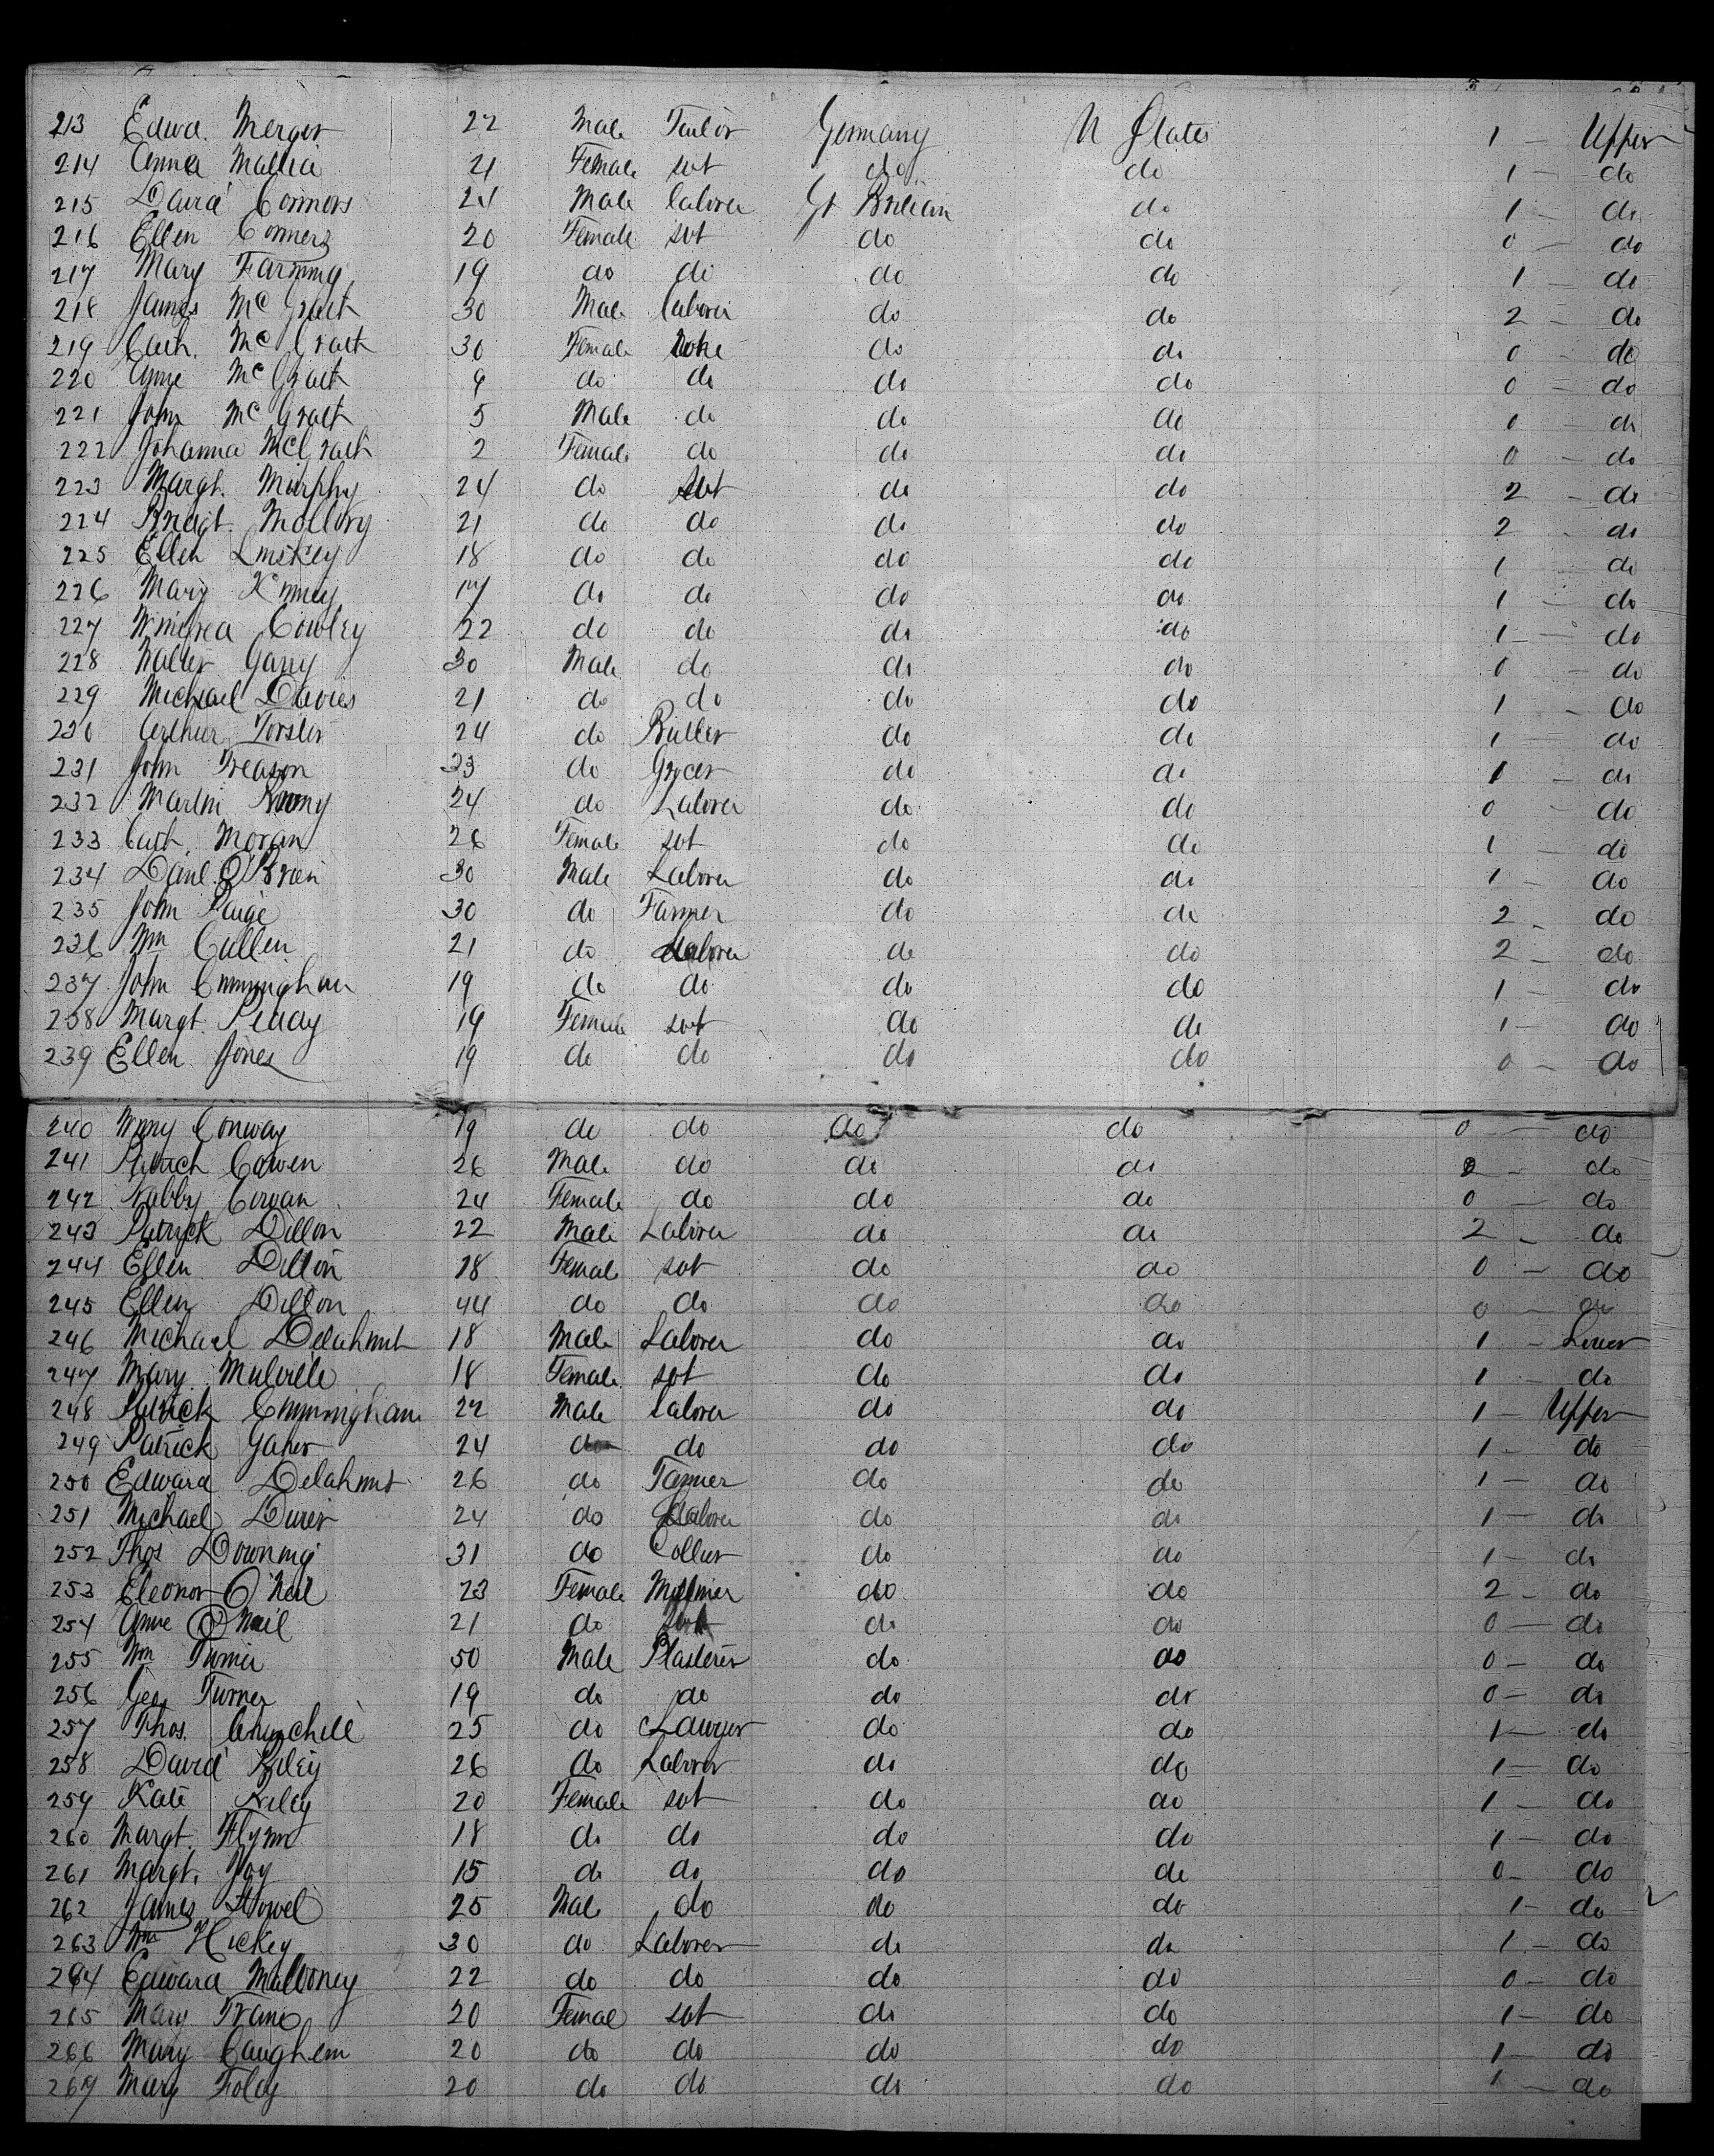 213 Edwd. Merger 22 Male Tailor Germany U States 1 - Upper
214 Anna Mallia 21 Female svt do do 1 - do
215 David Connors 21 Male laborer Gt Britain do 1 - do
216 Ellen Conners 20 Female svt do do 0 - do
217 Mary Farming 19 do do do do 1 - do
218 James McGrath 30 Male laborer do do 2 - do
219 Cath. McGrath 30 Female do do 0 - do
220 Anne McGrath 9 do do do do 0 - do
221 John McGrath 5 Male do do do 0 - do
222 Johanna McGrath 2 Female do do do 0 - do
223 Margt. Murphy 24 do svt do do 2 - do
224 Bridgt. Mollory 21 do do do do 2 - do
225 Ellen Linskey 18 do do do do 1 - do
226 Mary Kinney 17 do do do do 1 - do
227 Winifrea Cowley 22 do do do do 1 - do
228 Walter Garry 30 Male do do do 0 - do
229 Michael Davies 21 do do do do 1 - do
230 Arthur Forster 24 do Butler do do 1 - do
231 John Treason 33 do Grocer do do 1 - do
232 Martin Roony 24 do Laborer do do 0 - do
233 Cath. Moran 26 Female svt do do 1 - do
234 Danl. O'Brien 30 Male Laborer do do 1 - do
235 John Paige 30 do Farmer do do 2 - do
236 Wm Cullen 21 do Laborer do do 2 - do
237 John Cunningham 19 do do do do 1 - do
238 Margt. Reday 19 Female svt do do 1 - do
239 Ellen Jones 19 do do do do 0 - do
240 Winny Conway 19 do do do do 0 - do
241 Patrick Cowen 26 Male do do do 2 - do
242 Nabby Cowan 24 Female do do do 0 - do
243 Patrick Dillon 22 Male Laborer do do 2 - do
244 Ellen Dillon 18 Female svt do do 0 - do
245 Ellen Dillon 44 do do do do 0 - do
246 Michael Delahunt 18 Male Laborer do do 1 - Lower
247 Mary Mulville 18 Female svt do do 1 - do
248 Patrick Cunningham 22 Male Laborer do do 1 - Upper
249 Patrick Gaher 24 do do do do 1 - do
250 Edward Delahunt 26 do Tanner do do 1 - do
251 Michael Durier 24 do Laborer do do 1 - do
252 Thos Downing 31 do Collier do do 1 - do
253 Eleonor O'Neil 23 Female Milliner do do 2 - do
254 Anne O'Neil 21 do svt do do 0 - do
255 Wm Turner 50 Male Plasterer do do 0 - do
256 Geo Turner 19 do do do do 0 - do
257 Thos. Churchill 25 do Lawyer do do 1 - do
258 David Riley 26 do Laborer do do 1 - do
259 Kate Riley 20 Female svt do do 1 - do
260 Margt. Flynn 18 do do do do 1 - do
261 Margt. Joy 15 do do do do 0 - do
262 James Howel 25 Male do do do 1 - do
263 Wm Hickey 30 do Laborer do do 1 - do
264 Edward Mulloney 22 do do do do 0 - do
265 Mary Frane 20 Female svt do do 1 - do
266 Mary Caughem 20 do do do do 1 - do
267 Mary Foley 20 do do do do 1 - do